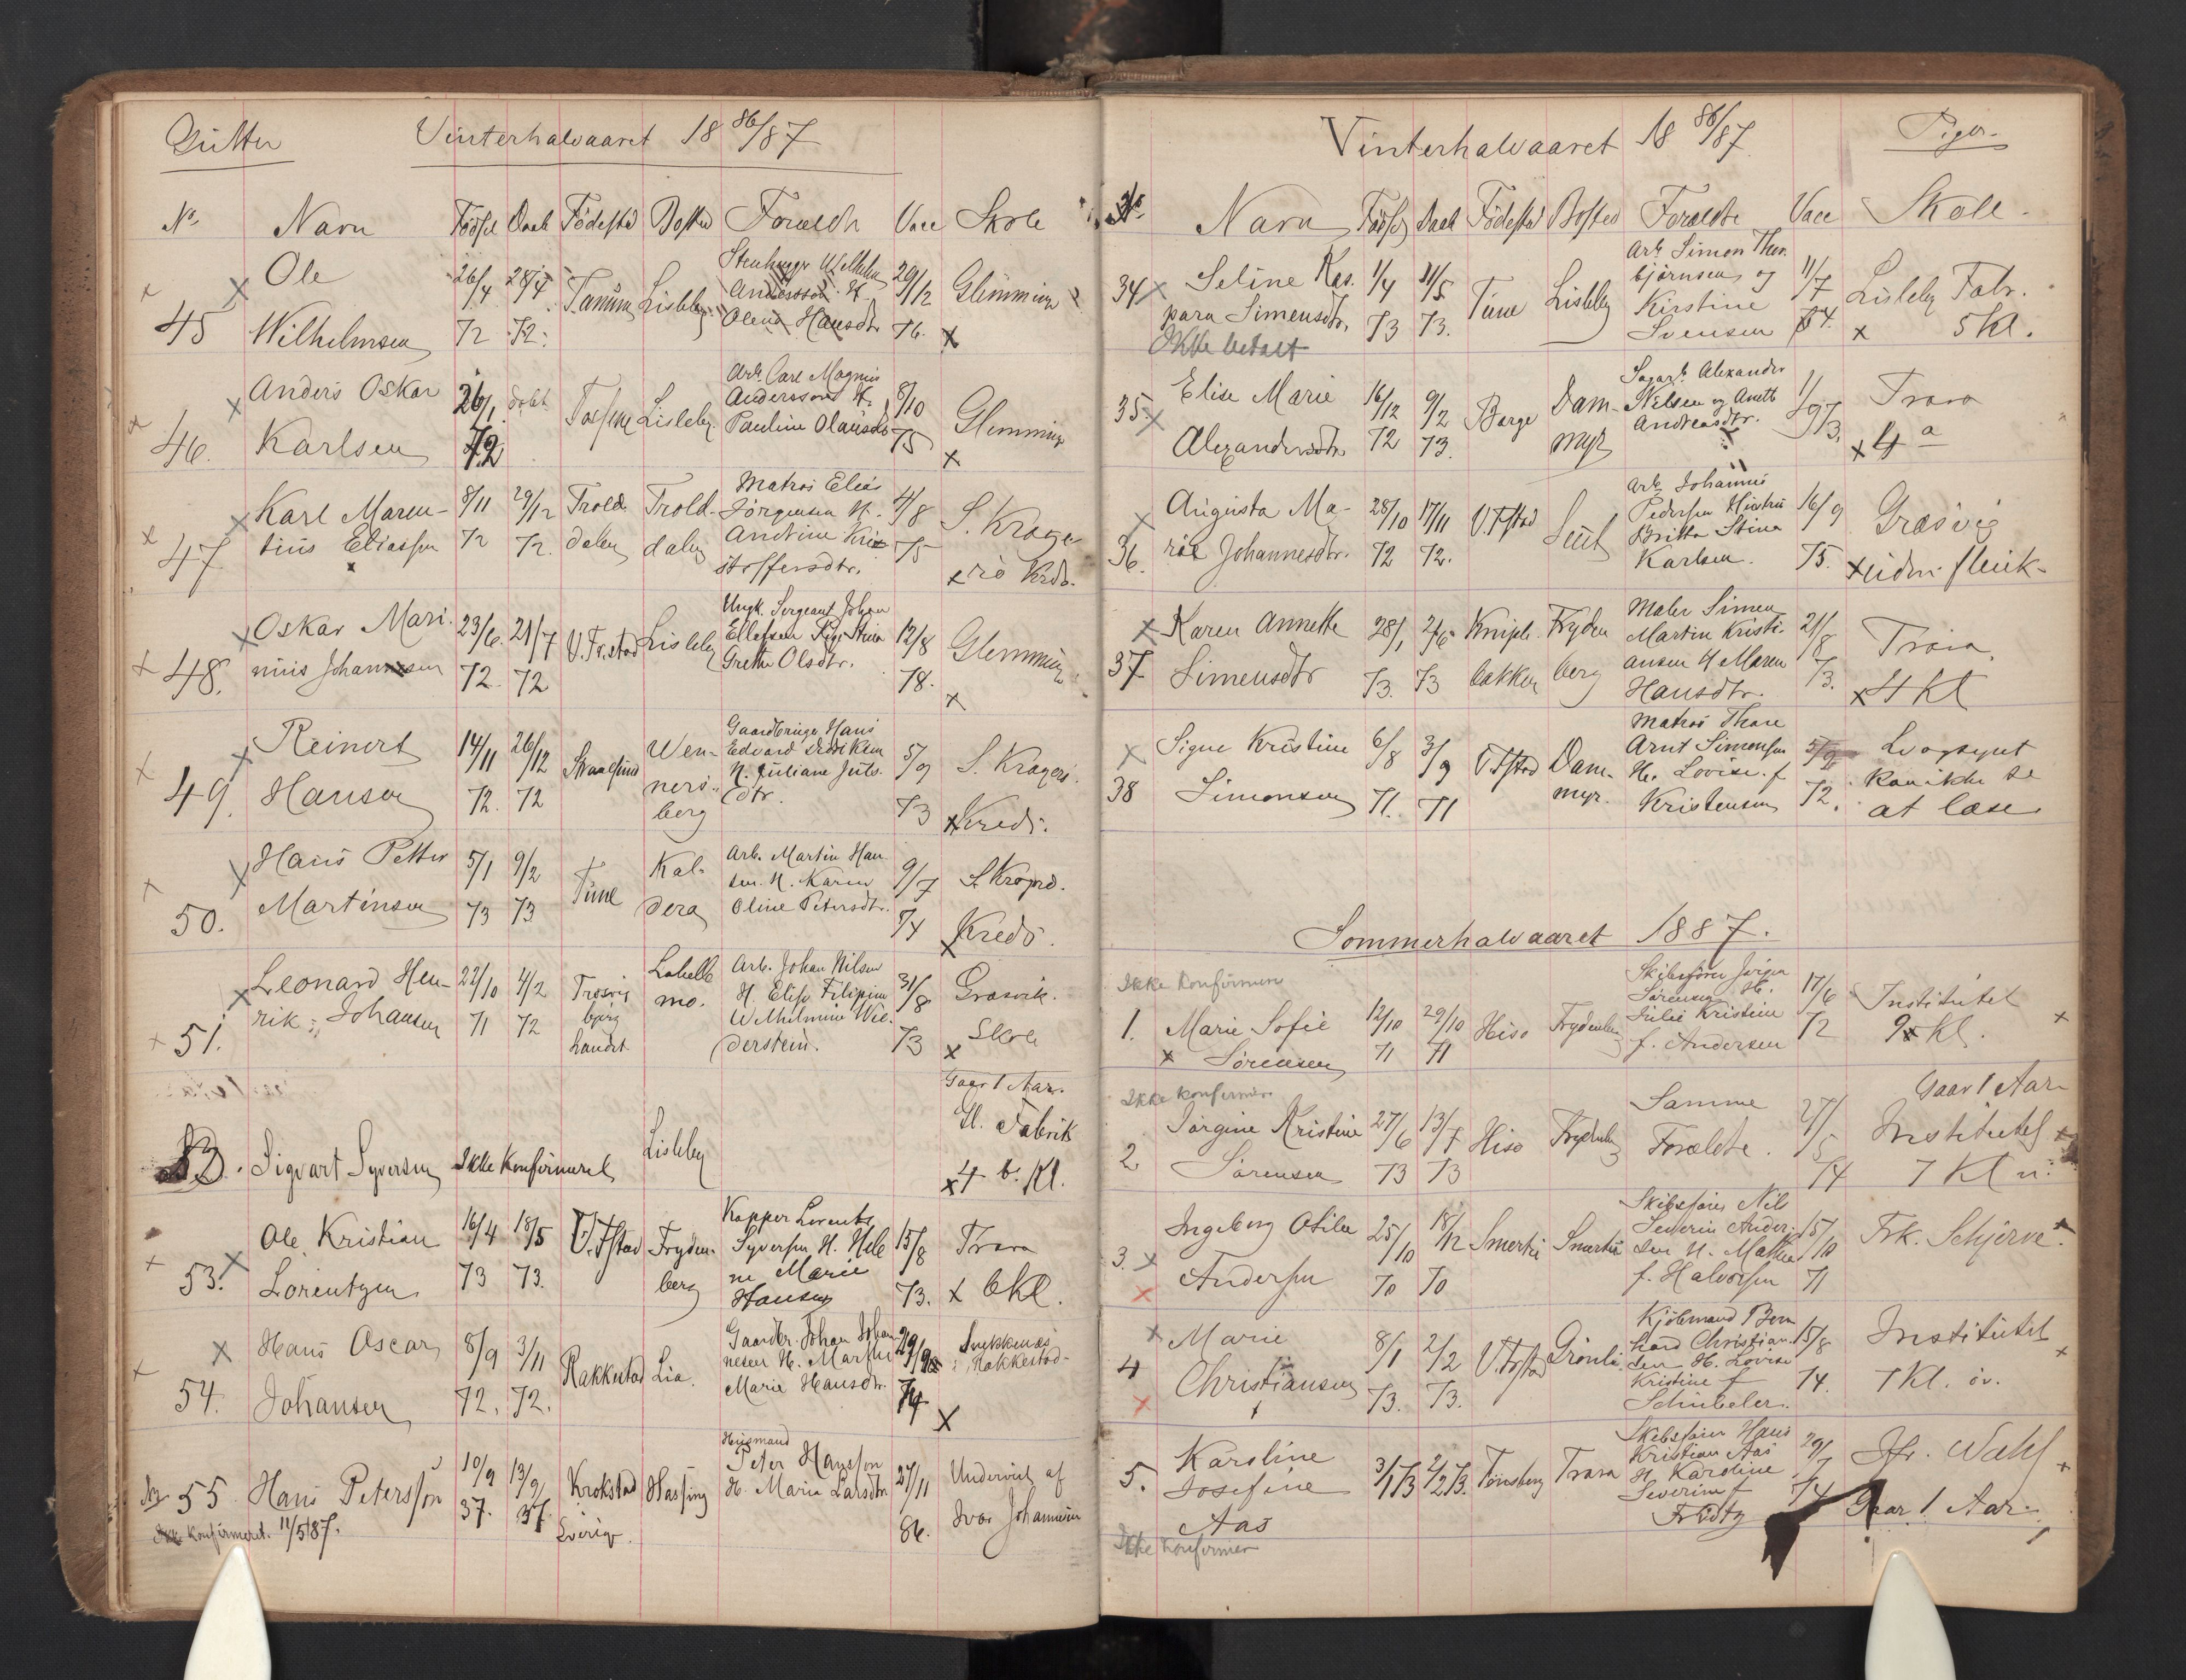 Gutter Vinterhalvaaret 18 86/87
No. Navn Födsel Daab Födested Bosted Forældr Vacc Skole
45 Ole Wilhelmsen 26/4 72 28/4 72. Tanum Lisleby Stenhugger Wilhelm Andersson H. Olena Hansdtr 29/12 76. Glemminge
46. Anders Oskar Karlsen 26/1 72 döbt Lisleby. Arb. Carl Magnus Andersson H. Pauline Olausdtr 8/10 75 Glemminge
47 Karl Maren-
tius Eliassen 8/11 72 29/12 72. Trold dalen Trold-dalen Matros Elias Jörgensen H. Andrine Kristoffersdtr. 4/8 75 S. Kragerö Krds.
48. Oskar Mari-
nius Johannesen 23/6. 72. 21/7 72 V. Fr.stad Lisleby Ungk. Sergeant Johan Ellefsen Pige Stina Grethe Olsdtr. 12/8 78. Glemminge
49. Reinert Hansen 14/11 72. 26/12 72 Wen-ners-berg Gaardbruger Hans Edvard H. Juliane Juls-dtr. 5/9 73 S. Kragerö Kreds.
50. Hans Petter Martinsen 5/1 73 9/2 73 Tune Kal-dera Arb. Martin Han-sen. H. Karen Oline Petersdtr. 9/7 74 Kreds.
51. Leonard Hen-
rik Johansen 22/10 71 4/2 72 Trosvig bjerg Labello mo. Arb. Johan Nilsen H. Elise Filipine Wilhelmine Wil-derstein. 31/8 73 Græsvik. Skole
Gaar 1 Aar.
Sigvart Syversen Ikke Konfirmeret Lisleby Gl. Fabrik 4 b. Kl.
53. Ole Kristian Lorentzen 16/4 73 18/5 73. V. Fstad Fryden-berg Kapper Lorents Syversen H. Hele ne Marie Hansen 15/8 73. Trara 6 Kl.
54. Hans Oscar Johansen 8/9 72. 3/11 72. Rakkestad Lia. Gaardbr. Johan Johan nesen H. Marthe Marie Hansdtr. 29/9 74 Rakkestad-
55 Hans Petersson 10/9 37. 13/9 37 Krokstad Sverige. Hassing Husmand Peter Hansson H. Maria Larsdtr 27/11 86. Undervist af Ivar Johannesen
Ikke Konfirmeret. 11/5 87.
Vinterhalvaaret 18 86/87 Piger.
No. Navn Födsel Daab Födested Bosted Forældre Vacc Skole.
34 Seline Kas-
para Simensdtr. 1/4 73 11/5 73. Tune Lisleby Arb. Simon Thor-bjørnsen og Kirstine Svensen 11/7 74. Lisleby Fabr. 5 Kl.
Ikke betalt
35. Elise Marie Alexandersdtr. 16/12 72 9/2 73. Borge Dam-myr Sagarb. Alexander Nilsen og Anette Andreasdtr. 1/9 73. Trara 4 a
36. Augusta Ma-
rie Johannesdtr. 28/10 72 17/11 72. V. Fstad Seut Arb. Johannes Pedersen Hustru Britta Stina Karlsen. 16/9 75. Græsvig
37 Karen Annette Simensdtr 28/1 73. 2/6 73 Kniple bakken Fryden berg Maler Simen Martin Kristi-ansen H Maren Hansdtr. 21/8 73. Trara, 4 Kl
38 Signe Kristine Simonsen 6/8 71. 3/9 71 V. Fstad Dam-myr. Matros Thore Arnt Simonsen H. Lovise f. Kristensen 5/9 72. Svagsynt Kan ikke se at læse
Sommerhalvaaret 1887.
Ikke Konfirmeres
1. Marie Sofie Sørensen 12/10 71 29/10 71 Hisö Frydenberg Skibsfører Jörgen Sörensen H. Julie Kristine f. Andersen 17/6 72 Institutet 9 Kl.
Ikke konfirmeres
2 Jørgine Kristine Sørensen 27/6 73 13/7 73 Hisö Frydenberg Samme Forældre. 27/5 74 Gaar 1 Aar Institutet 7 Kl n.
3. Ingeborg Otilie Andersen 25/10 70 18/12 70 Smertu Smertu Skibsförer Nils Severin Ander-sen H. Mathea f. Halvorsen 15/10 71 Frk. Schjörve.
4 Marie Christiansen 8/1 73. 2/2 73. V. Frstad Grönli. Kjöbmand Bern hard Christian-sen H. Lovise Kristine f Schübeler. 15/8 74. Institutet 7 Kl. öv.
5. Karoline Josefine Aas 3/1 73 2/2 73. Tønsberg Trara Skibsförer Hans Kristian Aas H. Karoline Severine f 29/7 74 Jfr. Gaar 1 Aar.
Ikke konfirmer